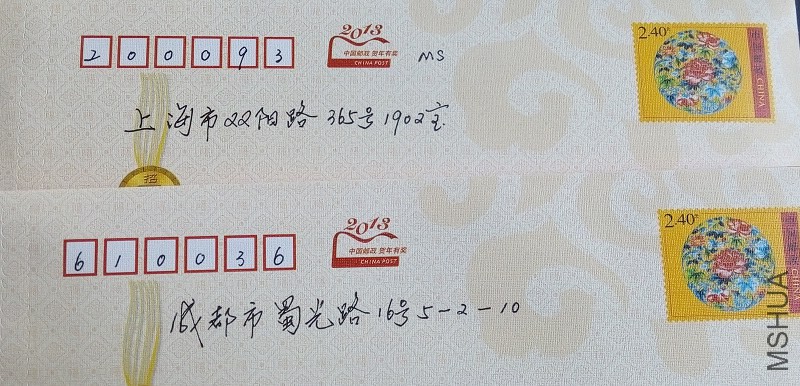 200093
2013
中国邮政 贺年有奖
CHINA POST
MS
2.40元
CHINA
上海市双阳路365号1902室
招
610036
2013
中国邮政 贺年有奖
CHINA POST
2.40元
CHINA
成都市蜀光路16号5-2-10
MSHUA